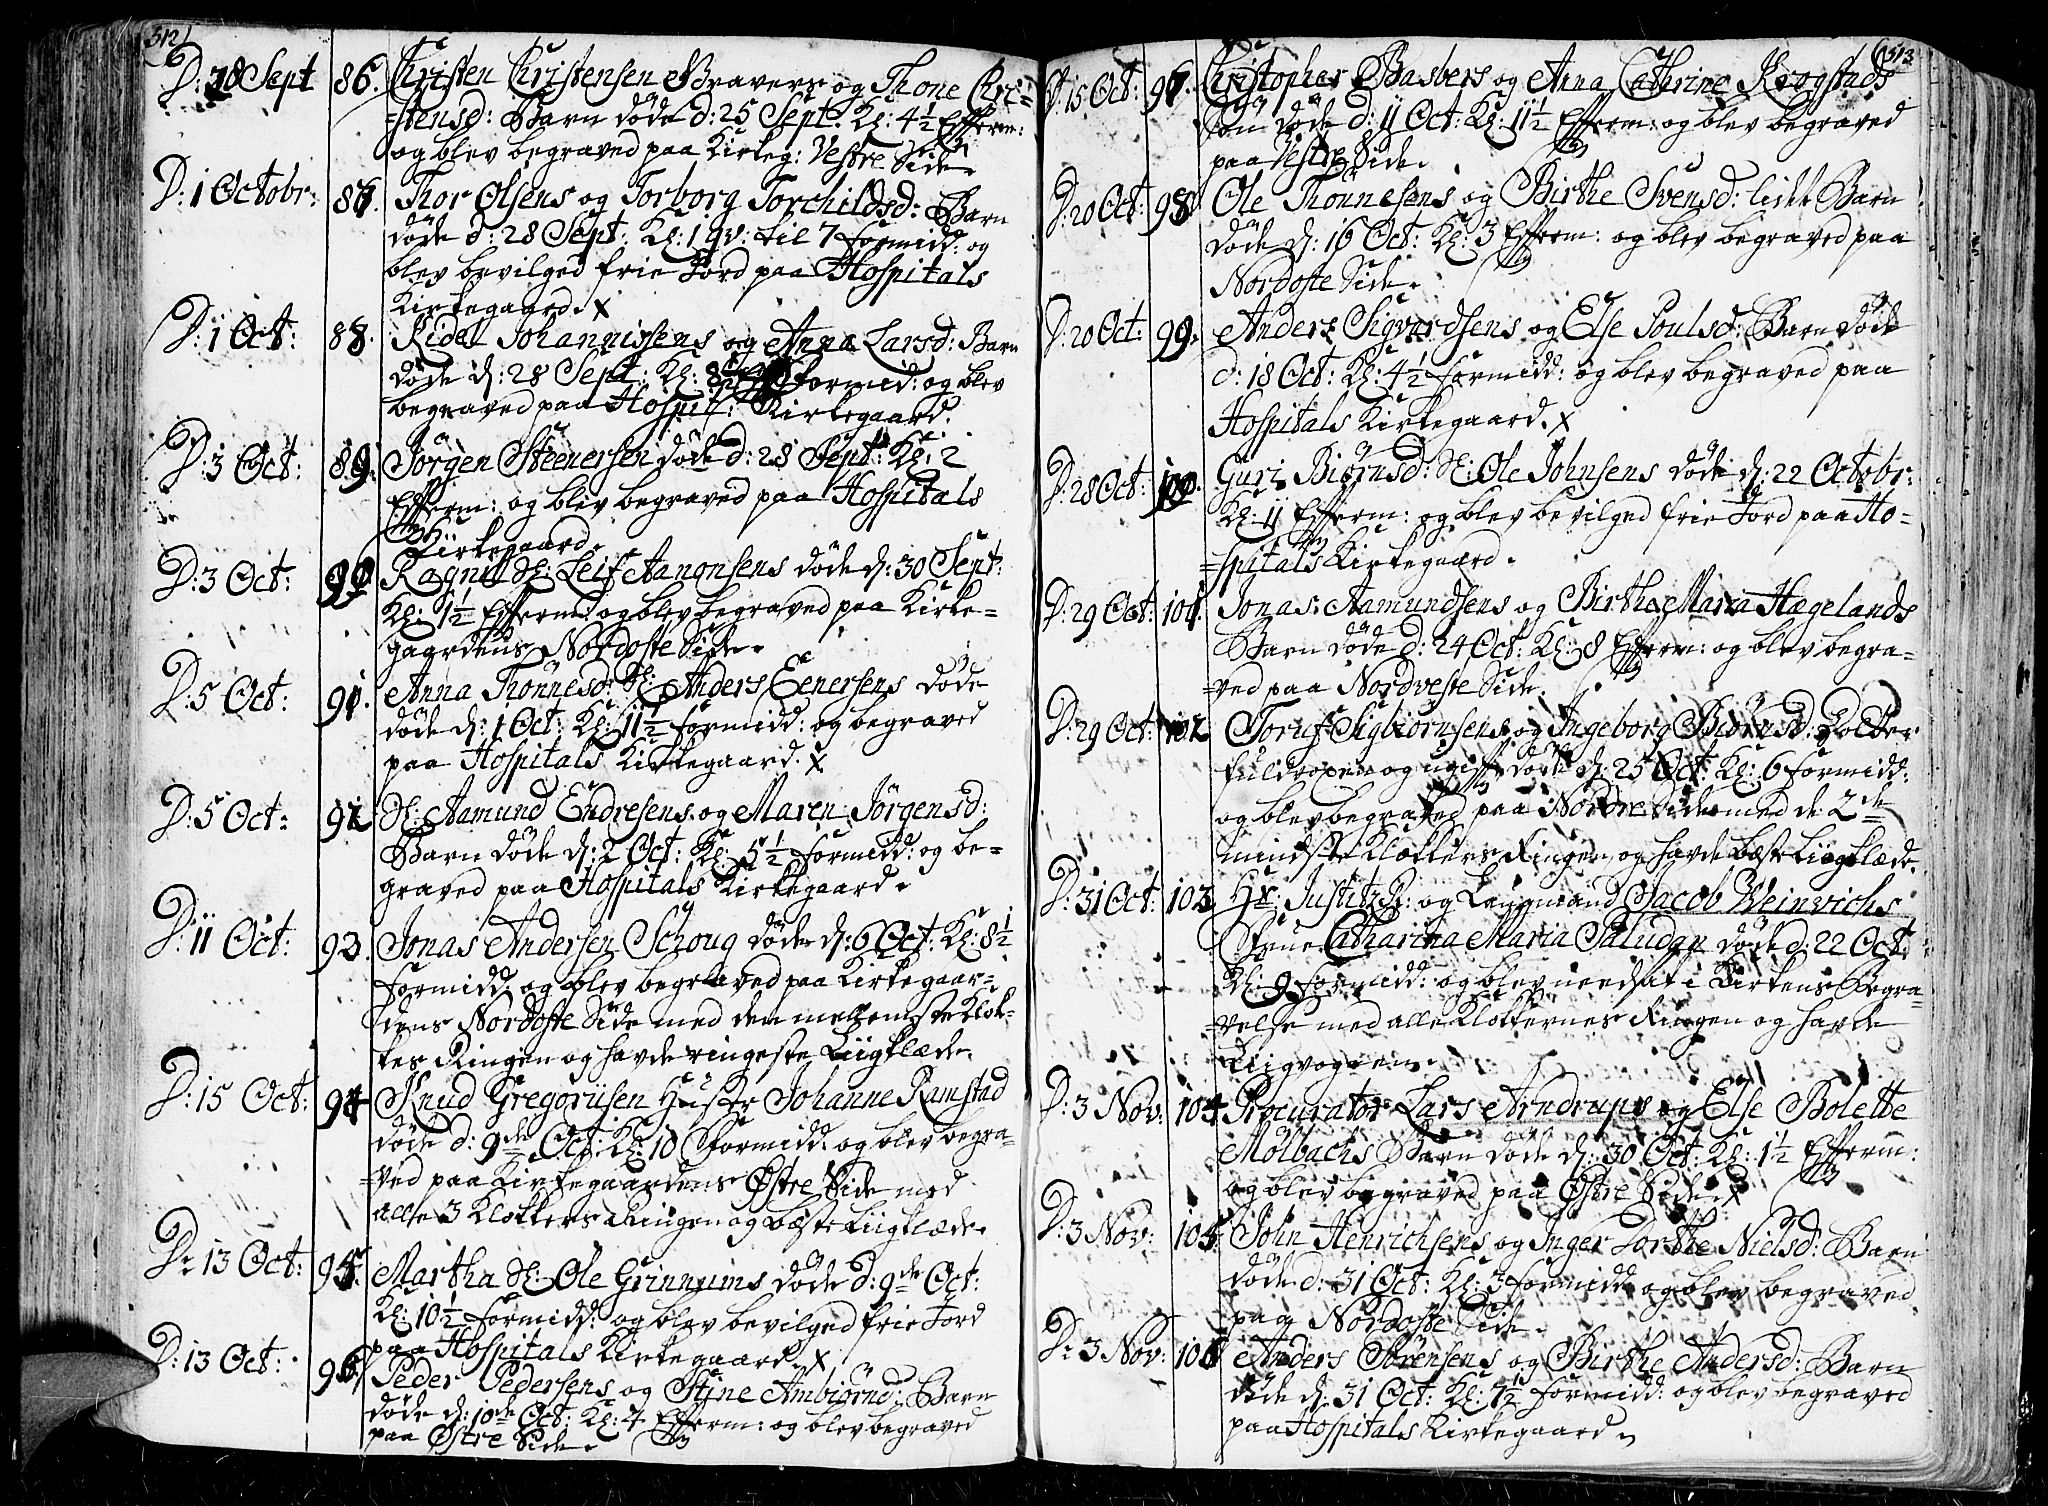 512
D: 28 Sept 86. Christen Christensen Gravers og Thone Chri-
=stensd: Barn døde d: 25 Sept: Kl: 4½ Efterm:
og blev begraved paa Kirkeg: Vestre Side.
D: 1 Octobr: 87. Thor Olsens og Torborg Torchildsd: Barn
døde d: 28 Sept: Kl: 1 qv: til 7 formidd: og
blev bevilged frie Jord paa Hospitals
Kirkegaard. X
D: 1 Oct: 88. Kidel Johannissens og Anna Larsd: Barn
døde d: 28 Sept: Kl: 8 formid: og blev
begraved paa Hospit: Kirkegaard.
D: 3 Oct: 89. Jörgen Steenersen døde d: 28 Sept: Kl: 2
Efterm: og blev begraved paa Hospitals
Kirkegaard
D: 3 Oct: 90. Ragnil Sl: Leif Aanonsens døde d: 30 Sept:
Kl: 1½ Efterm: og blev begraved paa Kirke-
gaardens Nordoste Side.
D: 5 Oct: 91. Anna Thönnesd: Sl: Anders Eenersens døde
døde d: 1 Oct: Kl: 11½ formidd: og begraved
paa Hospitals Kirkegaard. X
D: 5 Oct: 92 Sl: Aamund Endresens og Maren Jörgensd:
Barn døde d: 2 Oct: Kl: 5½ formidd: og be-
graved paa Hospitals Kirkegaard.
D: 11 Oct: 93. Jonas Andersen Schoug døde d: 6 Oct: Kl: 8½
formidd: og blev begraved paa Kirkegaar-
dens Nordoste Side med den mellemste Klok-
kes Ringen og havde ringeste Liigklæde.
D: 15 Oct: 94 Knud Gregoriisen Hustr Johanne Ramstad
døde d: 9de Oct: Kl: 10 Formidd: og blev begra-
=ved paa Kirkegaardens Østre Side med
alle 3 Klokkers Ringen og bæste Liigklæde.
D: 13 Oct: 95. Martha Sl: Ole Grinnums døde d: 9de Oct:
Kl: 10½ formidd: og blev bevilged frie Jord
paa Hospitals Kirkegaard. X
D: 13 Oct: 96. Peder Pedersens og Stine Ambiörnd: Barn
døde d: 10de Oct: Kl: 4 Efterm: og blev begraved
paa Østre Side.
513
D: 15 Oct: 97. Christopher Basbergs og Anna Cathrine Krogstads
Søn døde d: 11 Oct: Kl: 11½ Efterm: og blev begraved
paa Vestre Side.
D: 20 Oct: 98. Ole Thönnesens og Birthe Svensd: lidet Barn
døde d: 16 Oct: Kl: 3 Efterm: og blev begraved paa
Nordoste Side.
D: 20 Oct: 99. Anders Sigvardsens og Else Poulsd: Barn døde
d: 18 Oct: Kl: 4½ formidd: og blev begraved paa
Hospitals Kirkegaard. X
D: 28 Oct: 100. Guri Biörnsd: Sl: Ole Johnsens døde d: 22 Octobr:
Kl: 11 Efterm: og blev bevilged frie Jord paa Ho-
=spitals Kirkegaard.
D: 29 Oct: 101. Jonas Aamundsens og Birthe Maria Hægelands
Barn døde d: 24 Oct: Kl: 8 Efterm: og blev begra-
=ved paa Nordveste Side.
D: 29 Oct: 102 Toruf Sigbiörnsens og Ingeborg Biörnsd: Dotter
fuldvoxen og ugift døde d: 25 Oct: Kl: 6 formidd:
og blev begraved paa Nordre Side med de 2de
mindste Klokkers Ringen og havde bæste Liigklæde.
D: 31 Oct: 103 Hr: Justitz R: og Laugmand Jacob Weinvichs
Frue Catharina Maria Paludan døde d: 22 Oct:
Kl: 9 formidd: og blev neersat i Kirkens Begra-
=velse med alle Klokkernes Ringen og havde
Liigvognen.
D: 3 Nov: 104 Procurator Lars Arndrups og Else Bolette
Mölbachs Barn døde d: 30 Oct: Kl: 1½ Efterm:
og blev begraved paa Østre Side. X
D: 3 Nov: 105 John Henrichsens og Inger Dorthe Nielsd: Barn
døde d: 31 Oct: Kl: 3 formidd: og blev begraved
paa Nordoste Side.
D: 3 Nov: 106 Anders Sörensens og Birthe Andersd: Barn
døde d: 31 Oct: Kl: 7½ formidd: og blev begraved
paa Hospitals Kirkegaard.